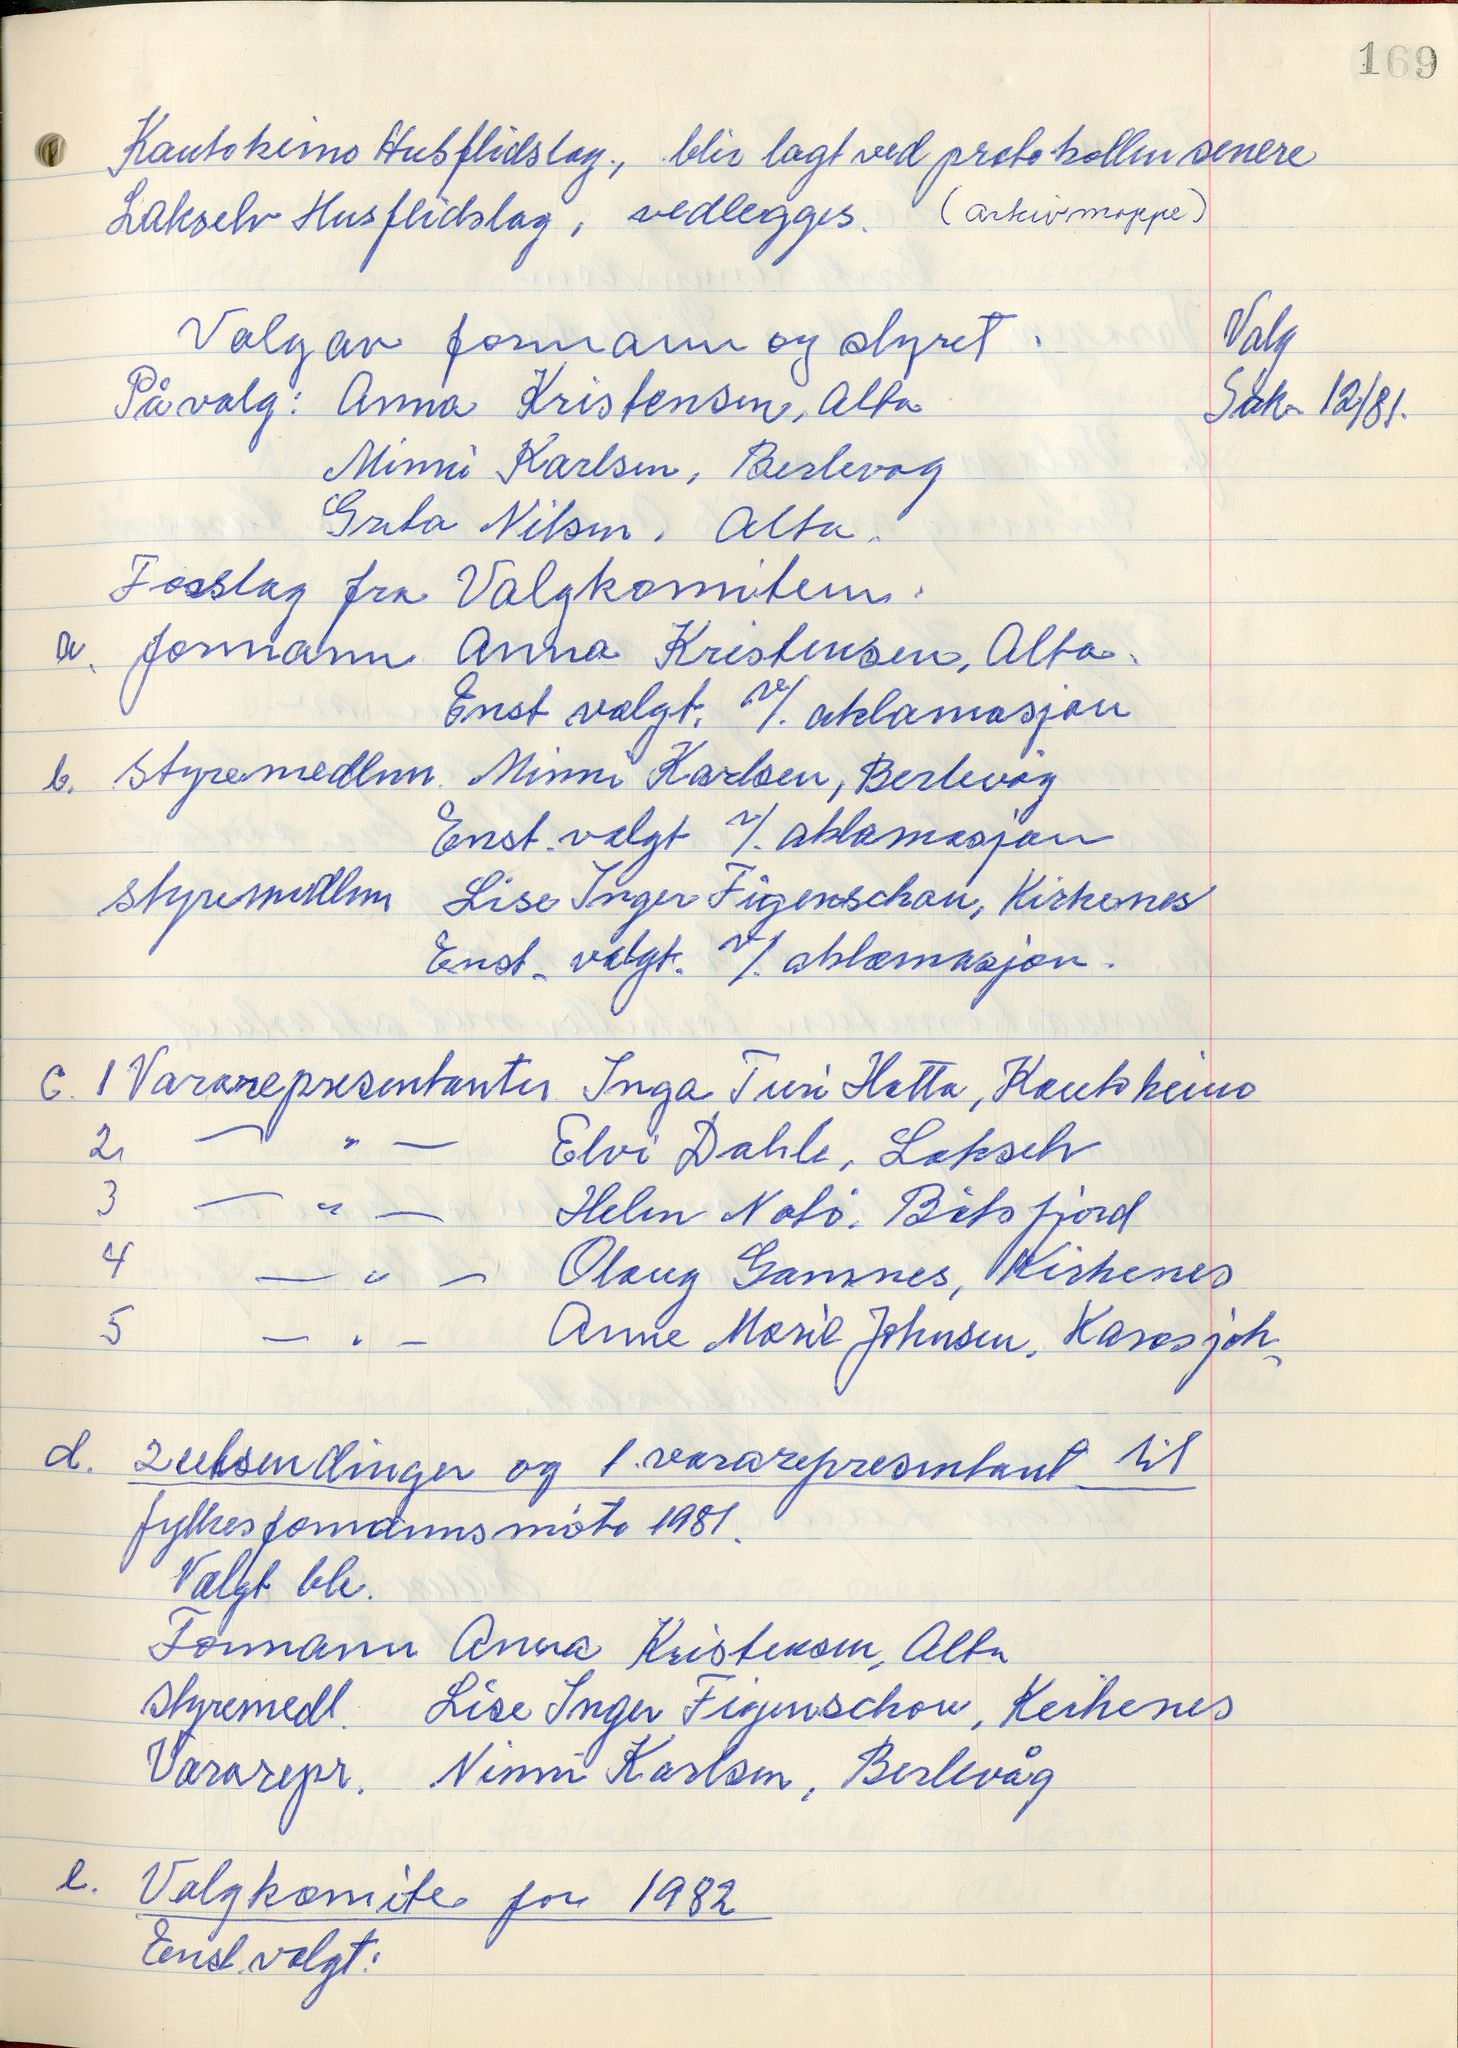 169
Kautokeino Husflidslag, blir lagt ved protokollen senere
Lakselv Husflidslag, vedlegges. (arkivmappe)
Valg av formann og styret. Valg
På valg: Anna Kristensen, Alta Sak 12/81.
Minni Karlsen, Berlevåg
Greta Nilsen, Alta.
Forslag fra Valgkomiteen:
a. formann Anna Kristensen, Alta.
Enst valgt. v/. aklamasjon
b. styremedlem. Minni Karlsen, Berlevåg
Enst. valgt v/. aklamasjon
styremedlem Lise Inger Figenschau, Kirkenes
Enst. valgt. v/. aklamasjon.
c. 1 Vararepresentanter Inga Turi Hætta, Kautokeino
2. — " — Elvi Dahle, Lakselv
3 — " — Helen Notø, Båtsfjord
4 — " — Olaug Gamnes, Kirkenes
5 — " — Anne Marie Johnsen, Karasjok.
d. 2 utsendinger og 1. vararepresentant til
fylkesformannsmøte 1981.
Valgt ble.
Formann Anna Kristensen, Alta
styremedl. Lise Inger Figenschou, Kirkenes
Vararepr. Ninni Karlsen, Berlevåg
e. Valgkomite for 1982
Enst. valgt: